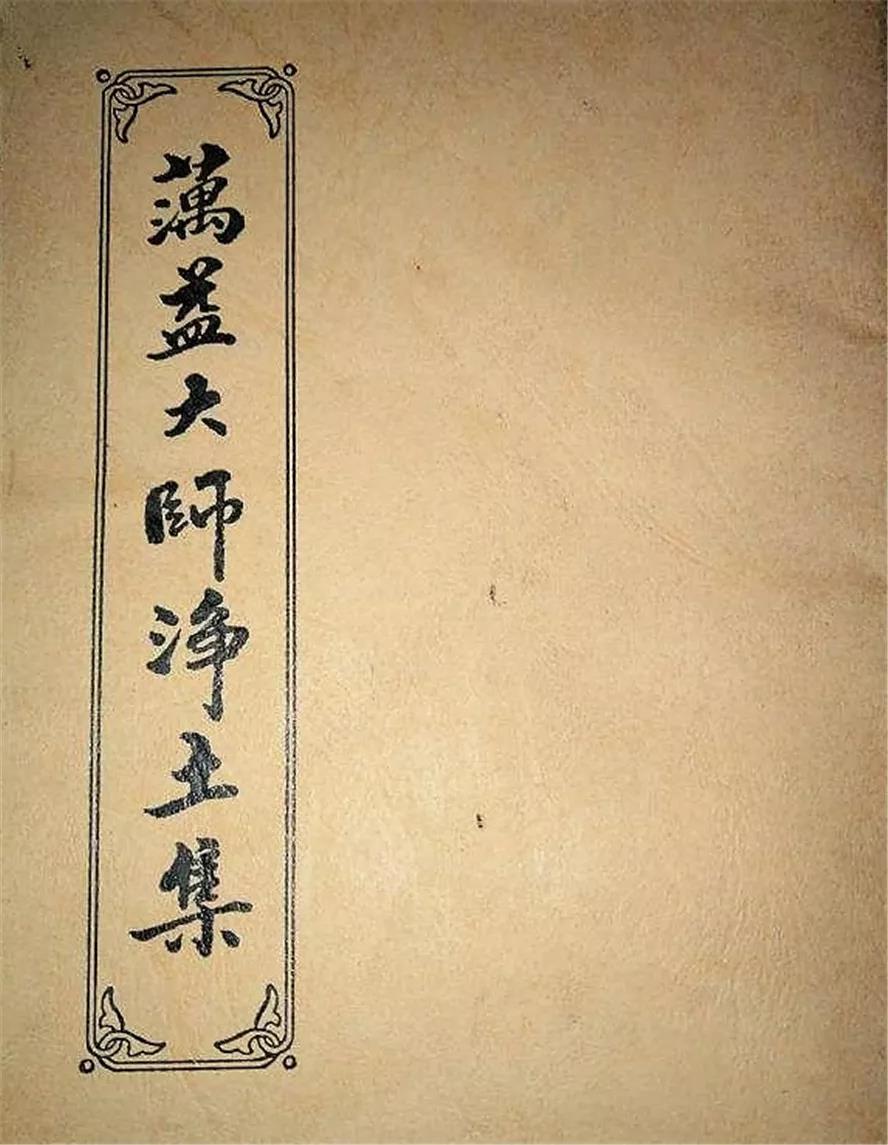 蕅益大師浄土集